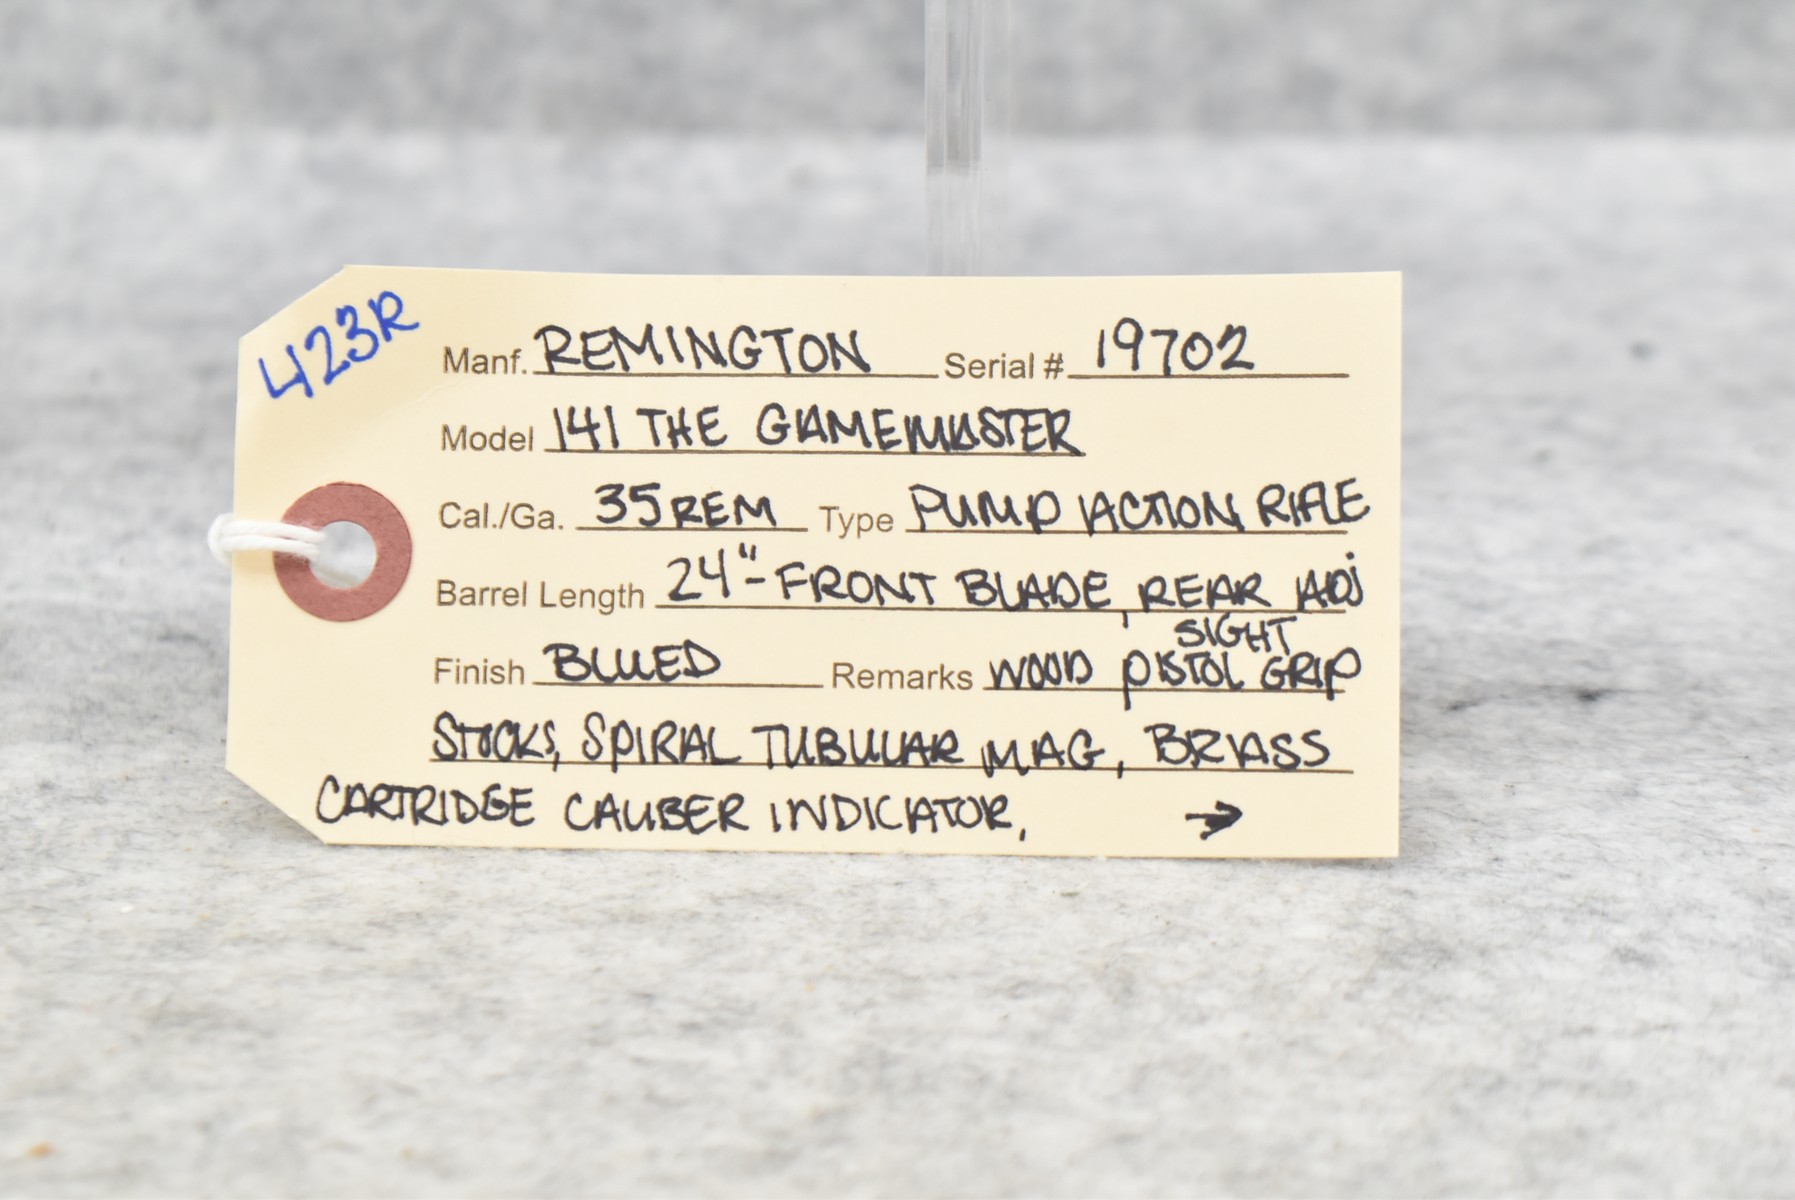 423R
Manf. REMINGTON Serial # 19702
Model 141 THE GAMEMASTER
Cal./Ga. 35 REM Type PUMP ACTION RIFLE
Barrel Length 24"- FRONT BLADE, REAR ADJ
SIGHT
Finish BLUED Remarks WOOD PISTOL GRIP
STOCKS, SPIRAL TUBULAR MAG, BRASS
CARTRIDGE CALIBER INDICATOR, →